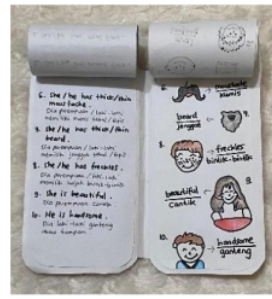 6. She / he has thick/thin
moustache.
Dia perempuan / laki-laki
memiliki kumis tebal / tipis
7. she / he has thick / thin
beard.
Dia perempuan / laki-laki
memiliki janggut tebal / tipis
8. she / he has freckles.
Dia perempuan / laki-laki
memiliki wajah bintik-bintik
9. She is beautiful.
Dia perempuan cantik
10. He is handsome.
Dia laki-laki ganteng
atau tampan
6.
moustache
kumis
beard
janggut
7.
8.
freckles
bintik-bintik
beautiful
cantik
9.
10.
handsome
ganteng